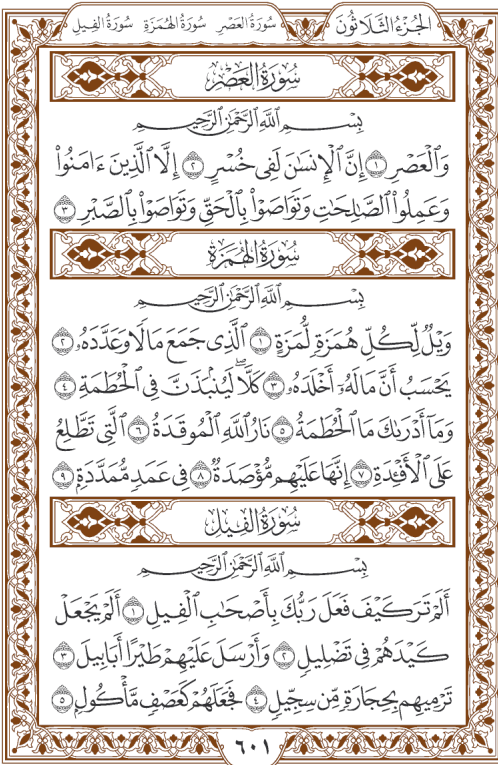 الجُزْءُ الثَّلَاثُونَ سُورَةُ العَصْرِ سُورَةُ الهُمَزَةِ سُورَةُ الفِيلِ
سُورَةُ العَصْرِ
بِسْمِ ٱللَّهِ ٱلرَّحْمَٰنِ ٱلرَّحِيمِ
وَٱلْعَصْرِ ١ إِنَّ ٱلْإِنسَٰنَ لَفِي خُسْرٍ ٢ إِلَّا ٱلَّذِينَ ءَامَنُوا۟
وَعَمِلُوا۟ ٱلصَّٰلِحَٰتِ وَتَوَاصَوْا۟ بِٱلْحَقِّ وَتَوَاصَوْا۟ بِٱلصَّبْرِ ٣
سُورَةُ الهُمَزَةِ
بِسْمِ ٱللَّهِ ٱلرَّحْمَٰنِ ٱلرَّحِيمِ
وَيْلٌ لِّكُلِّ هُمَزَةٍ لُّمَزَةٍ ١ ٱلَّذِي جَمَعَ مَالًا وَعَدَّدَهُۥ ٢
يَحْسَبُ أَنَّ مَالَهُۥٓ أَخْلَدَهُۥ ٣ كَلَّا ۖ لَيُنۢبَذَنَّ فِي ٱلْحُطَمَةِ ٤
وَمَآ أَدْرَىٰكَ مَا ٱلْحُطَمَةُ ٥ نَارُ ٱللَّهِ ٱلْمُوقَدَةُ ٦ ٱلَّتِي تَطَّلِعُ
عَلَى ٱلْأَفْـِٔدَةِ ٧ إِنَّهَا عَلَيْهِم مُّؤْصَدَةٌ ٨ فِي عَمَدٍ مُّمَدَّدَةٍۭ ٩
سُورَةُ الفِيلِ
بِسْمِ ٱللَّهِ ٱلرَّحْمَٰنِ ٱلرَّحِيمِ
أَلَمْ تَرَ كَيْفَ فَعَلَ رَبُّكَ بِأَصْحَٰبِ ٱلْفِيلِ ١ أَلَمْ يَجْعَلْ
كَيْدَهُمْ فِي تَضْلِيلٍ ٢ وَأَرْسَلَ عَلَيْهِمْ طَيْرًا أَبَابِيلَ ٣
تَرْمِيهِم بِحِجَارَةٍ مِّن سِجِّيلٍ ٤ فَجَعَلَهُمْ كَعَصْفٍ مَّأْكُولٍۭ ٥
٦٠١